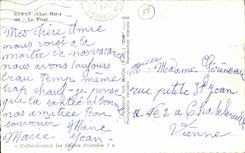 ROYAN (Char.-Mar.)
La Plage
Ma chère Amie
nous voici à la
moitié de nos vacances
nous avons toujours
beau temps même
trop chaud je pense
que ta santé est bonne
mes amitiés bon
souvenir Marie
Marie Jean
« Collectionnez les Cartes Postales ! »
Madame
rue petite St Jean
à Chatellerault
Vienne